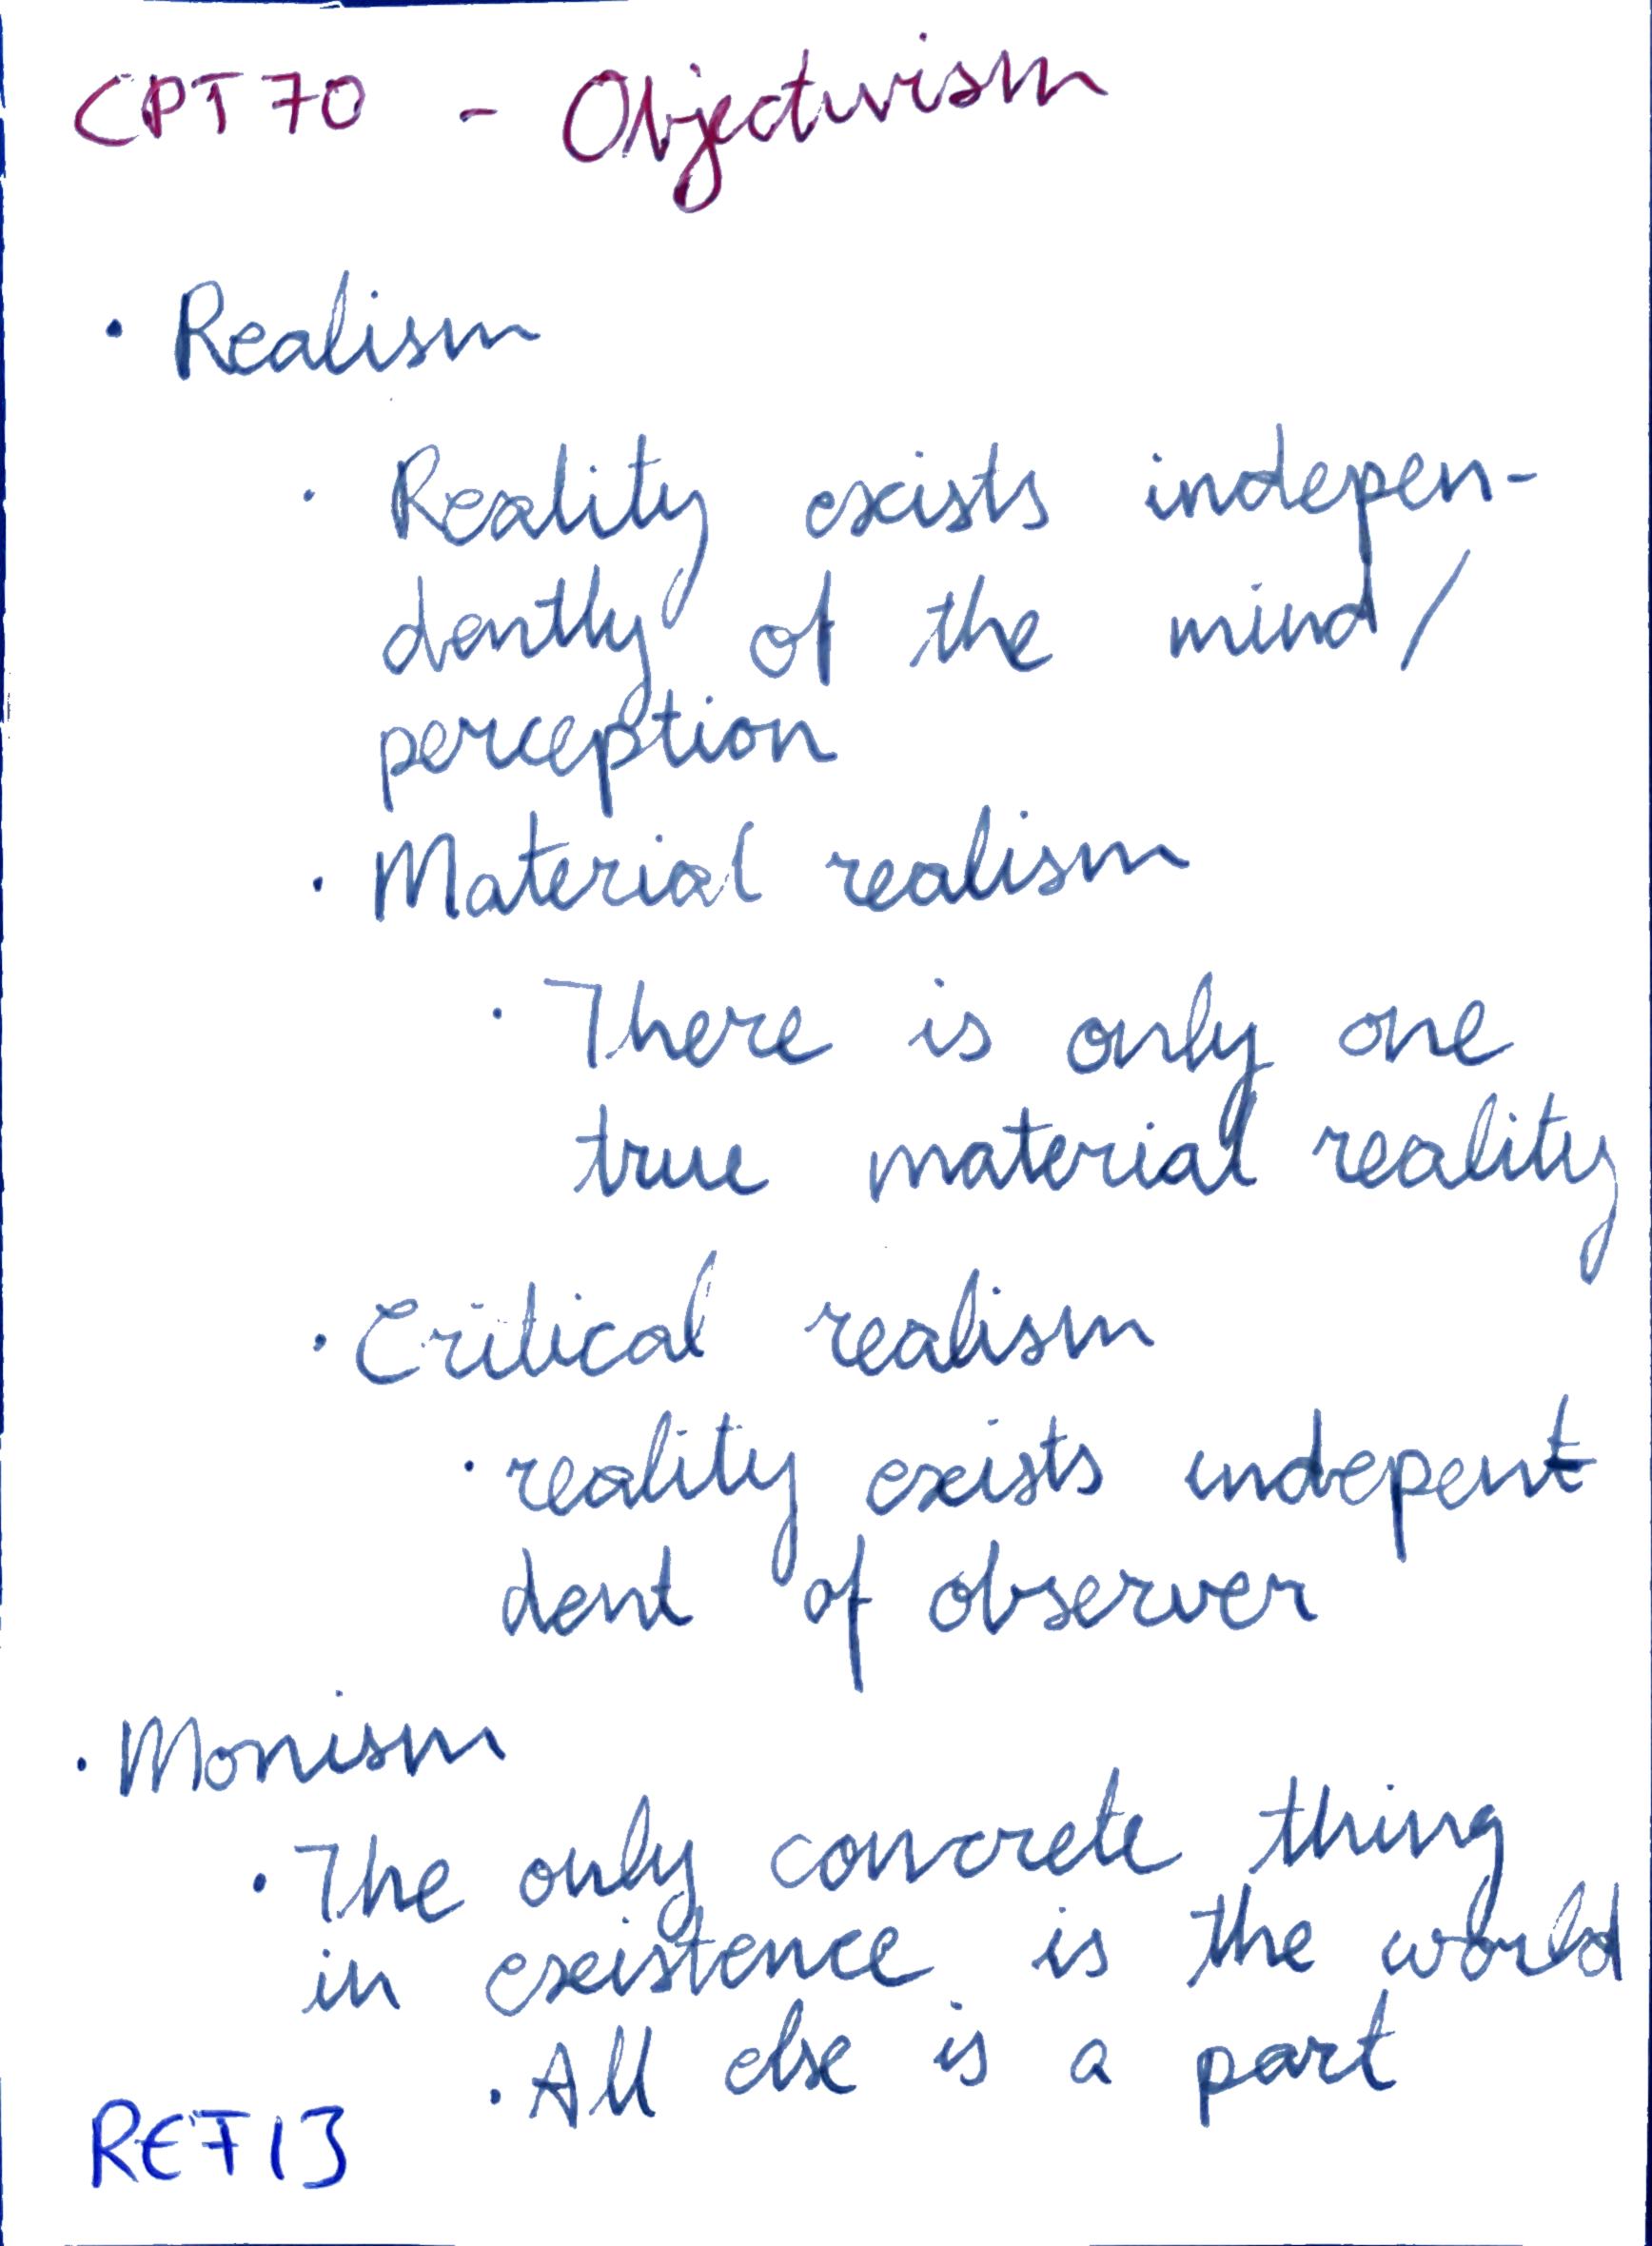 CPT70 - Objectivism
· Realism
· Reality exists indepen-
dently of the mind/
perception
· Material realism
· There is only one
true material reality
· Critical realism
· reality exists indepent
dent of observer
· Monism
· The only concrete thing
in existence is the world
· All else is a part
REF13